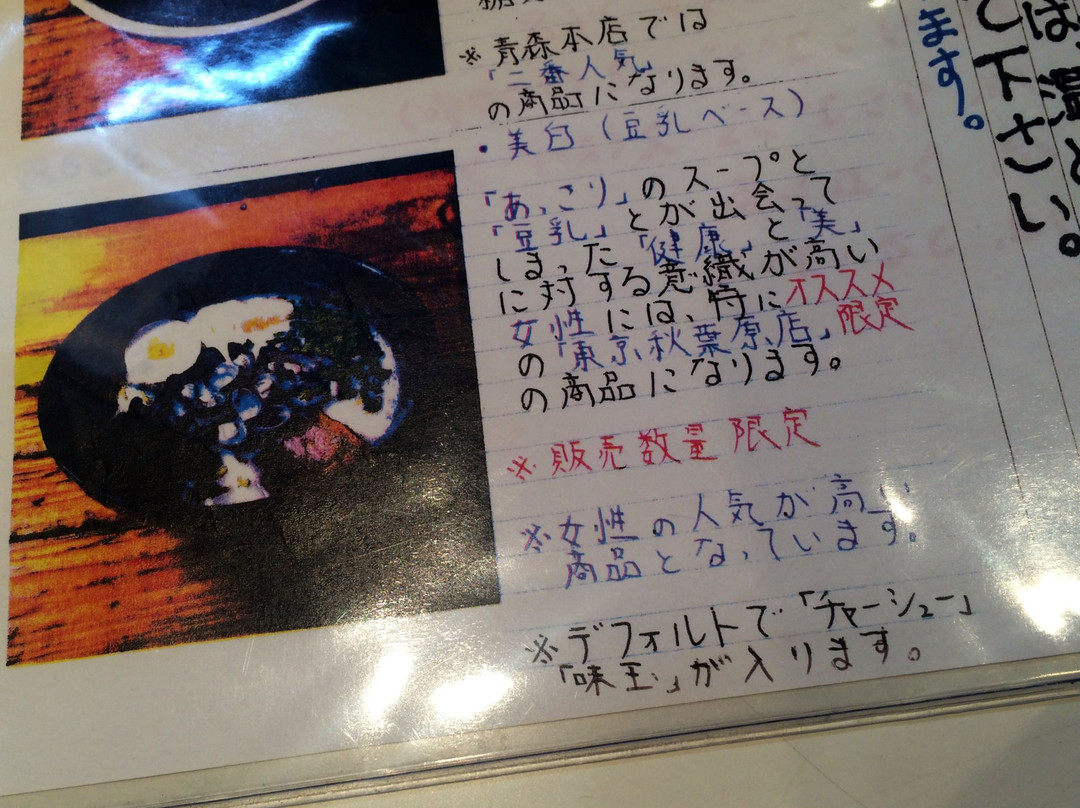 ※青森本店では
「二番人気」
の商品になります。
・美白（豆乳ベース）
「あっこり」のスープと
「豆乳」とが出会って
しまった「健康」と「美」
に対する意識が高い
女性には、特にオススメ
の「東京秋葉原店」限定
の商品になります。
※販売数量限定
※女性の人気が高い
商品となっています。
※デフォルトで「チャーシュー」
「味玉」が入ります。
ます。
て下さい。